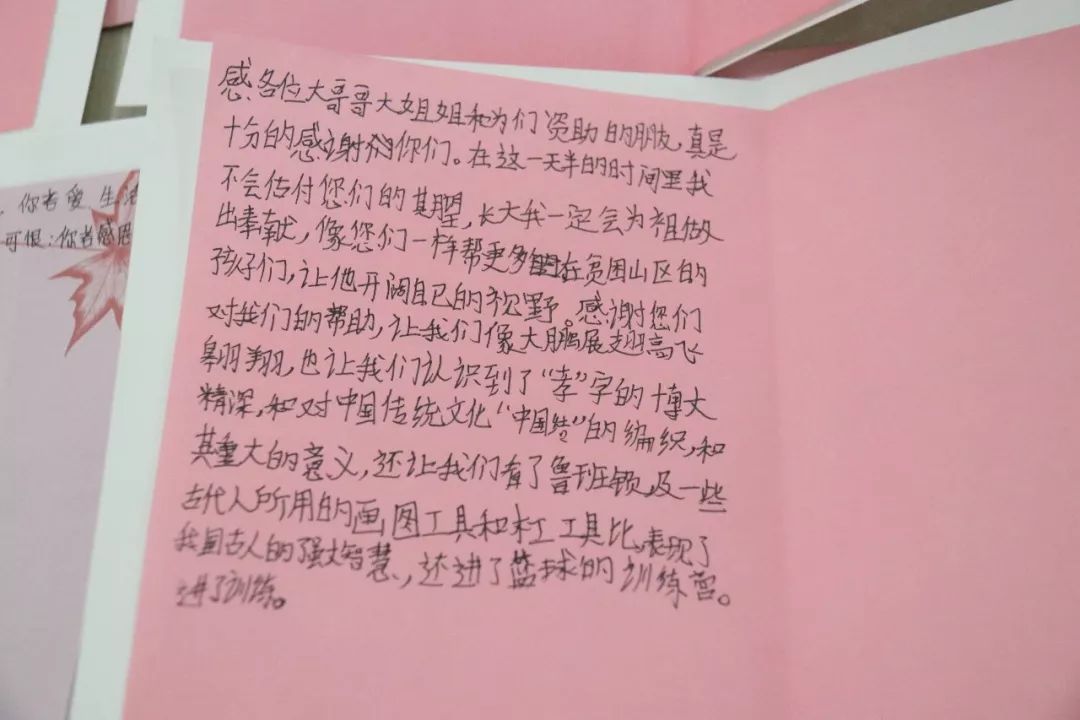 感各位大哥哥大姐姐和为们资助的朋友,真是
十分的感谢你们。在这一天半的时间里我
不会估付您们的期望,长大我一定会为祖做
出奉献,像您们一样帮更多的在贫困山区的
孩子们,让他开阔自已的视野。感谢您们
对我们的帮助,让我们像大鹏展翅高飞
翱翔,也让我们认识到了“孝”字的博大
精深,和对中国传统文化“中国结”的编织,和
其重大的意义,还让我们看了鲁班锁,及一些
古代人所用的画图工具和木工工具比,表现了
我国古人的强大智慧,还进了篮球的训练营。
进了训练。
你若爱 生活
可恨:你若感恩